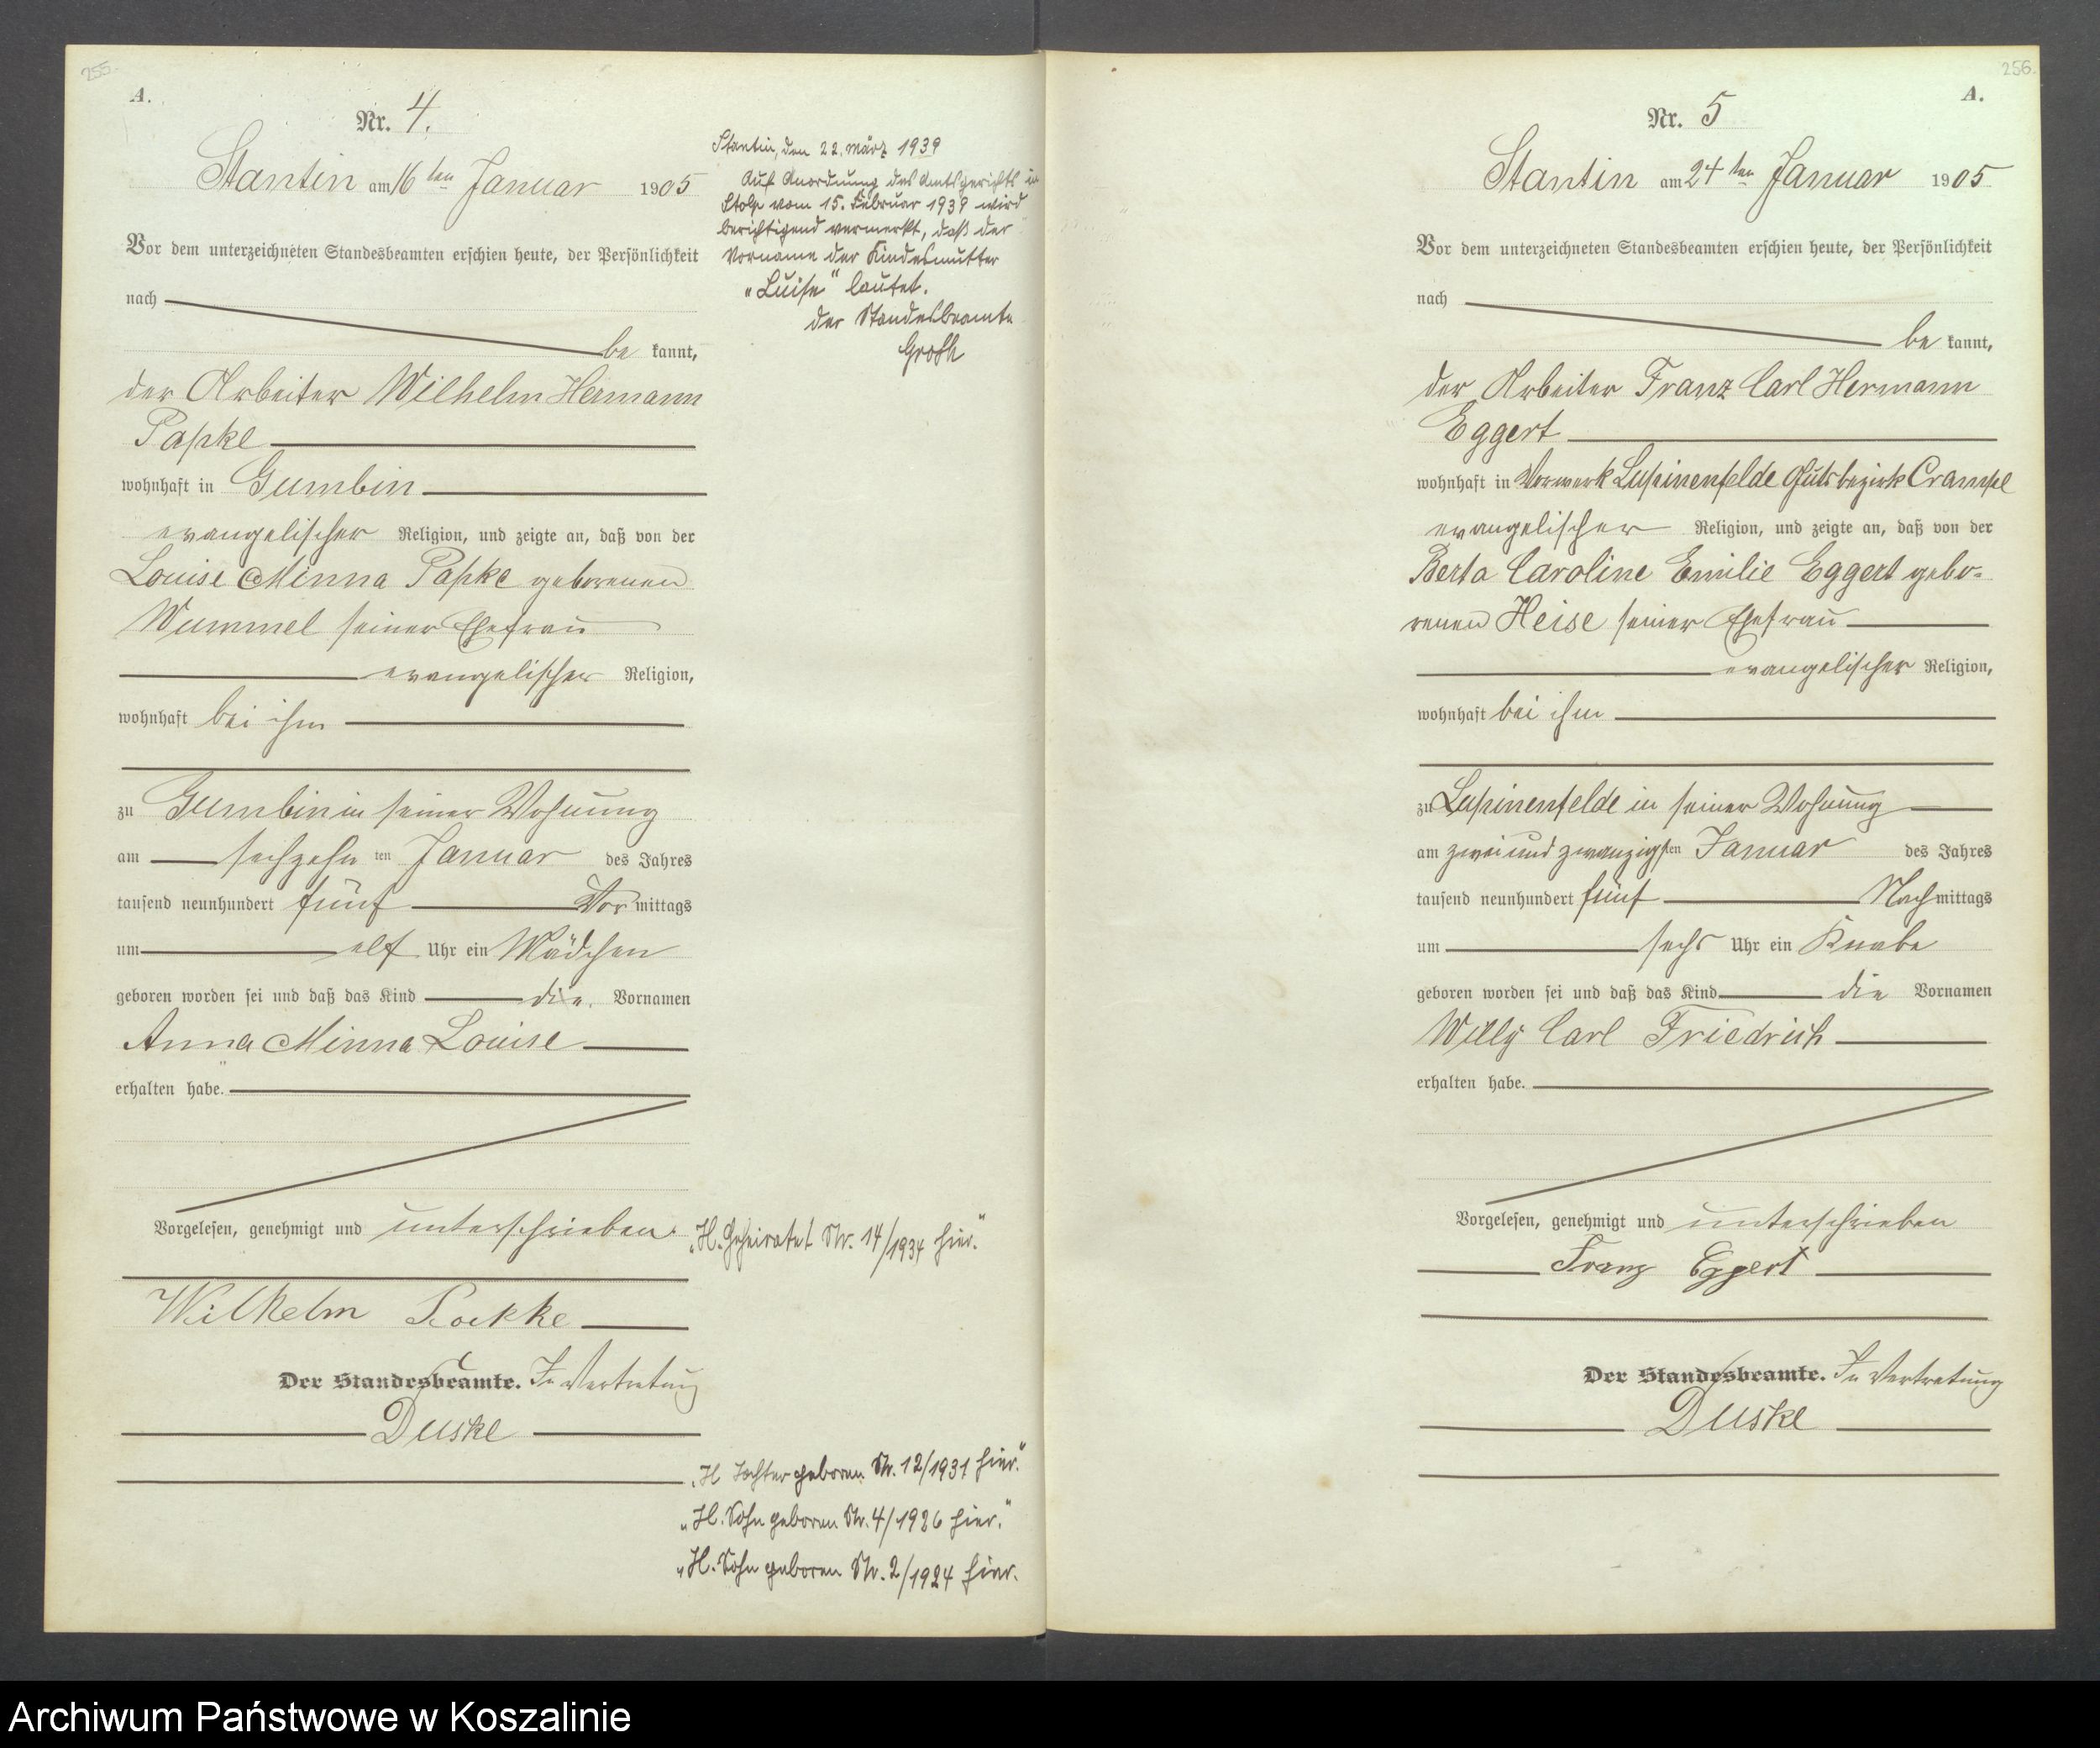 255.
A.
Nr. 4.
Stantin am 16ten Januar 1905
Vor dem unterzeichneten Standesbeamten erschien heute, der Persönlichkeit
nach
be kannt,
der Arbeiter Wilhelm Hermann
Papke
wohnhaft in Gumbin
evangelischer Religion, und zeigte an, daß von der
Louise Minna Papke geborenen
Wummel seiner Ehefrau
evangelischer Religion,
wohnhaft bei ihm
zu Gumbin in seiner Wohnung
am sechzehnten Januar des Jahres
tausend neunhundert fünf Vormittags
um elf Uhr ein Mädchen
geboren worden sei und daß das Kind die Vornamen
Anna Minna Louise
erhalten habe.
Vorgelesen, genehmigt und unterschrieben.
Wilhelm
Der Standesbeamte. In Vertretung
Duske
Stantin, den 22. März 1939
Auf Anordnung des Amtsgerichts in
Stolp vom 15. Februar 1939 wird
berichtigend vermerkt, daß der
Vorname der Kindesmutter
„Luise“ lautet.
der Standesbeamte
Groth
„H. Geheiratet Nr. 14/1934 hier.“
„H Tochter geboren Nr. 12/1931 hier.“
„H. Sohn geboren Nr. 4/1926 hier.“
„H. Sohn geboren Nr. 2/1924 hier.
256.
A.
Nr. 5
Stantin am 24ten Januar 1905
Vor dem unterzeichneten Standesbeamten erschien heute, der Persönlichkeit
nach
be kannt,
der Arbeiter Franz Carl Hermann
Eggert
wohnhaft in Vorwerk Lupinenfelde Gutsbezirk Crampe
evangelischer Religion, und zeigte an, daß von der
Berta Caroline Emilie Eggert gebo-
renen Heise seiner Ehefrau
evangelischer Religion,
wohnhaft bei ihm
zu Lupinenfelde in seiner Wohnung
am zwei und zwanzigsten Januar des Jahres
tausend neunhundert fünf Nachmittags
um sechs Uhr ein Knabe
geboren worden sei und daß das Kind die Vornamen
Willy Carl Friedrich
erhalten habe.
Vorgelesen, genehmigt und unterschrieben
Franz Eggert
Der Standesbeamte. In Vertretung
Duske
Archiwum Państwowe w Koszalinie